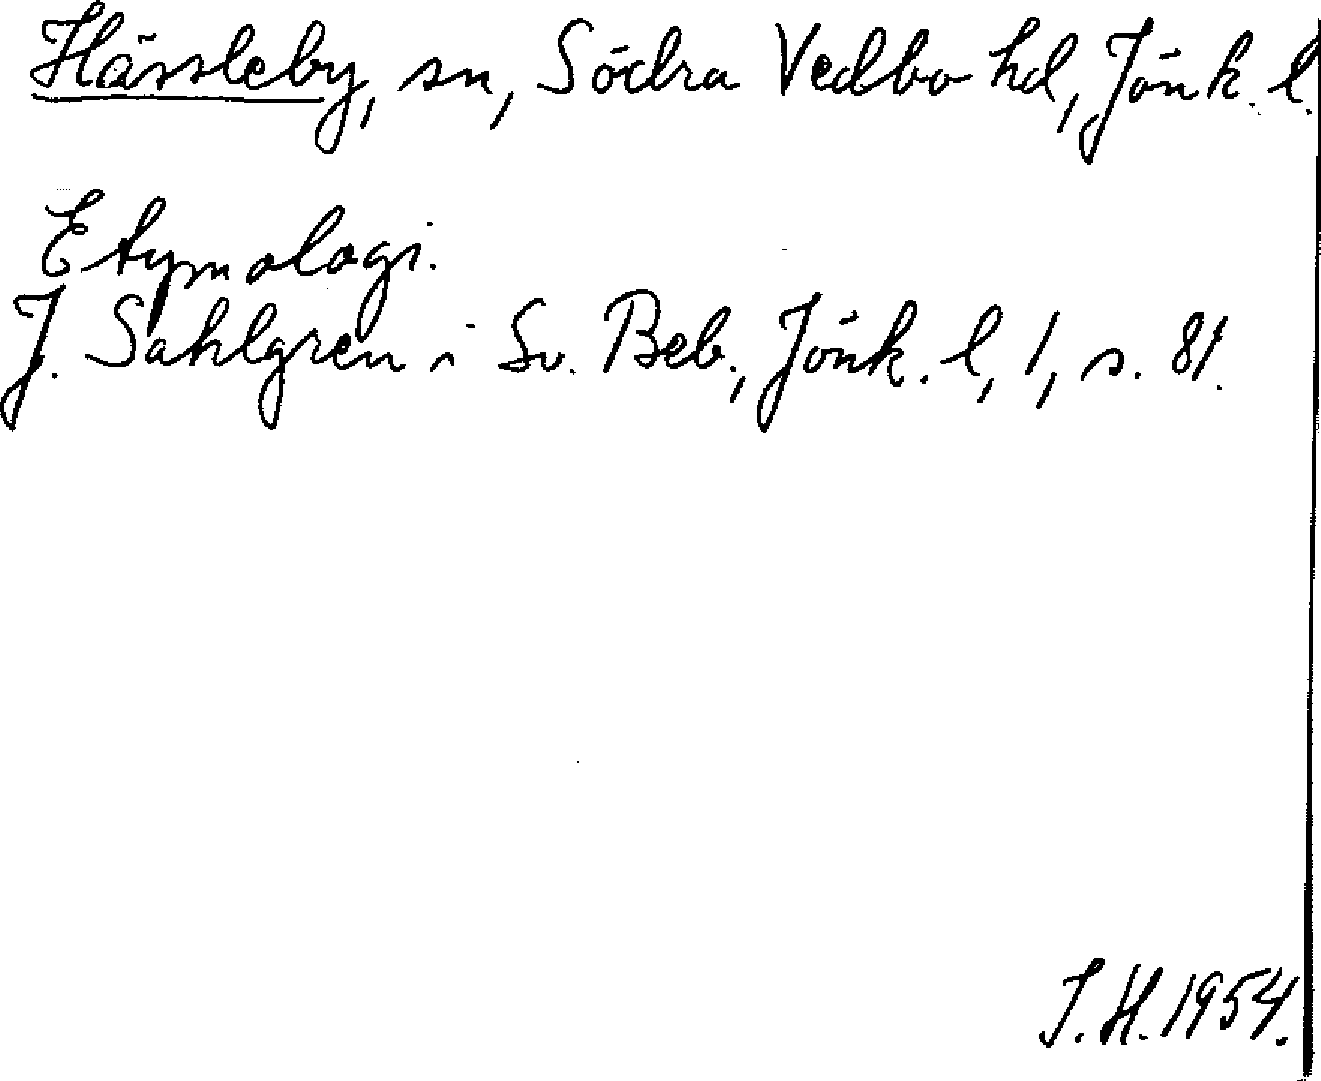 Hässleby, sn, Södra Vedbo hd, Jönk. l.
Etymologi.
J. Sahlgren i Sv. Beb., Jönk. l, 1, s. 81.
J. H. 1954.